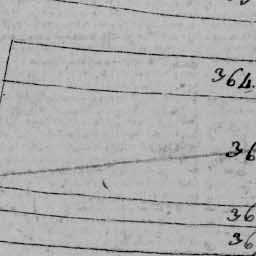 364.
36
36
36